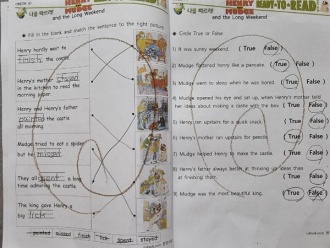 HENRY
MUDGE
and the Long Weekend
Fill in the blank and match the sentence to the right picture.
Henry hardly wait to
finish the castle.
Henry's mother stayed
in the kitchen to read the
morning paper.
Henry and Henry's father
painted the castle
all morning.
Mudge tried to eat a spider
but he missed
They all spent a long
time admiring the castle.
The king gave Henry a
big lick
painted missed finish lick spent stayed
HENRY READY-TO-READ
MUDGE
and the Long Weekend
Circle True or False
1) It was sunny weekend. ( True False )
2) Mudge flattened Henry like a pancake. ( True False )
3) Mudge went to sleep when he was bored. ( True False )
4) Mudge opened his eye and set up, when Henry's mother told
her ideas about making a castle with the box. ( True False )
5) Henry ran upstairs for a quick snack. ( True False )
6) Henry's mother ran upstairs for pencils. ( True False )
7) Mudge helped Henry to make the castle. ( True False )
8) Henry's father always better at thinking up ideas then
at finishing them. ( True False )
9) Mudge was the most beautiful king. ( True False )